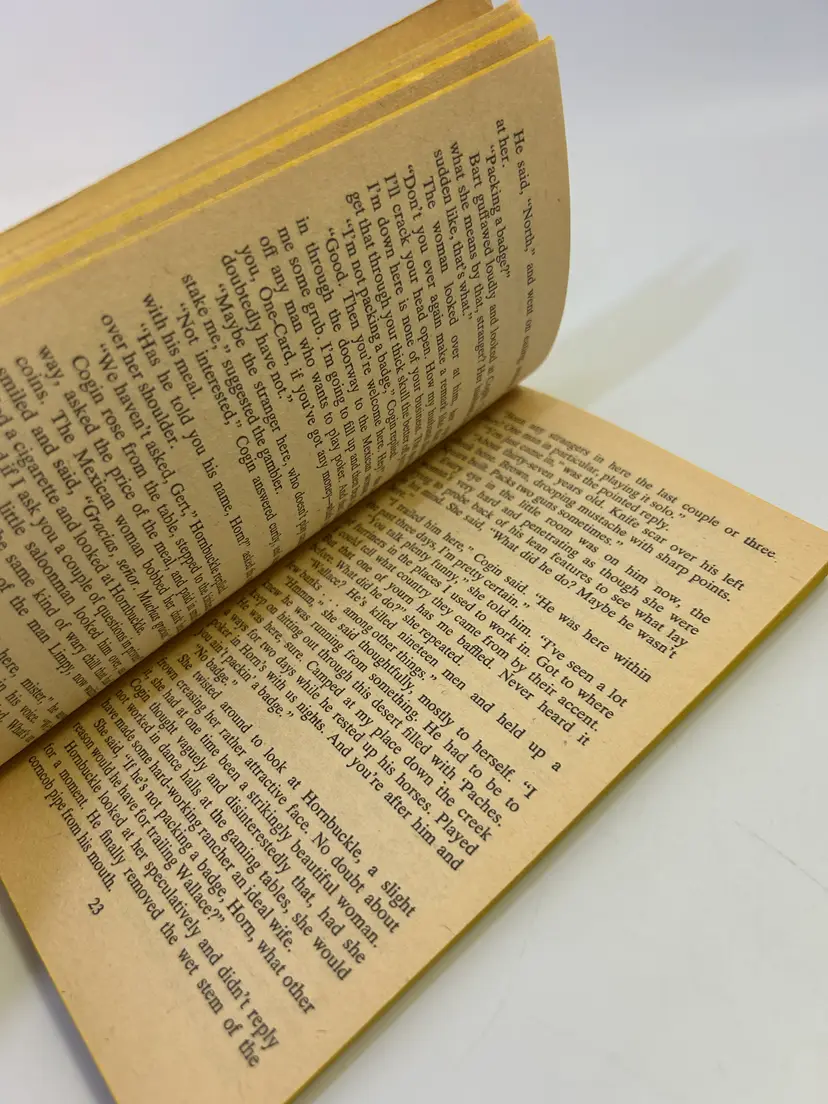 He said, "North," and went on eating
at her.
"Packing a badge?"
Bart guffawed loudly and looked at
what she means by that, stranger? Her
sudden like, that's what."
The woman looked over at him,
"Don't you ever again make a remark
I'll crack your head open. How my
I'm down here is none of your business.
get that through your thick skull the better
"I'm not packing a badge," Cogin replied.
"Good. Then you're welcome here. Hey
in through the doorway to the Mexican
me some grub. I'm going to fill up and then
off any man who wants to play poker. And
you, One-Card, if you've got any money—
doubtedly have not."
"Maybe the stranger here, who doesn't
stake me," suggested the gambler.
"Not interested," Cogin answered curtly, and
with his meal.
"Has he told you his name, Horn?" asked
over her shoulder.
"We haven't asked, Gert," Hornbuckle replied.
Cogin rose from the table, stepped to the
way, asked the price of the meal, and put
coins. The Mexican woman bobbed her
smiled and said, "Gracias, señor. Muchas
a cigarette and looked at Hornbuckle.
if I ask you a couple of questions
little saloonman looked him over,
same kind of wary chill that
of the man Limpy, now
here, mister," he
in his voice.
What's
my strangers in here the last couple or three
One man in particular, playing it solo."
just came in," was the pointed reply.
"About thirty-seven years old. Knife scar over his left
Brown, drooping mustache with sharp points.
Packs two guns sometimes."
eye in the little room was on him now, the
very hard and penetrating as though she were
to probe back of his lean features to see what lay
mind. She said, "What did he do? Maybe he wasn't
trailed him here," Cogin said. "He was here within
past three days. I'm pretty certain."
"You talk plenty funny," she told him. "I've seen a lot
of farmers in the places I used to work in. Got to where
could tell what country they came from by their accent.
that one of yourn has me baffled. Never heard it
before. What did he do?" she repeated.
"Wallace? He's killed nineteen men and held up a
banks . . . among other things."
"Hmmm," she said thoughtfully, mostly to herself. "I
knew he was running from something. He had to be to
keep on hitting out through this desert filled with 'Paches.
He was here, sure. Camped at my place down the creek
a ways for two days while he rested up his horses. Played
poker in Horn's with us nights. And you're after him and
you ain't packin' a badge."
"No badge."
She twisted around to look at Hornbuckle, a slight
frown creasing her rather attractive face. No doubt about
it, she had at one time been a strikingly beautiful woman.
Cogin thought vaguely and disinterestedly that, had she
not worked in dance halls at the gaming tables, she would
have made some hard-working rancher an ideal wife.
She said, "If he's not packing a badge, Horn, what other
reason would he have for trailing Wallace?"
Hornbuckle looked at her speculatively and didn't reply
for a moment. He finally removed the wet stem of the
corncob pipe from his mouth.
23